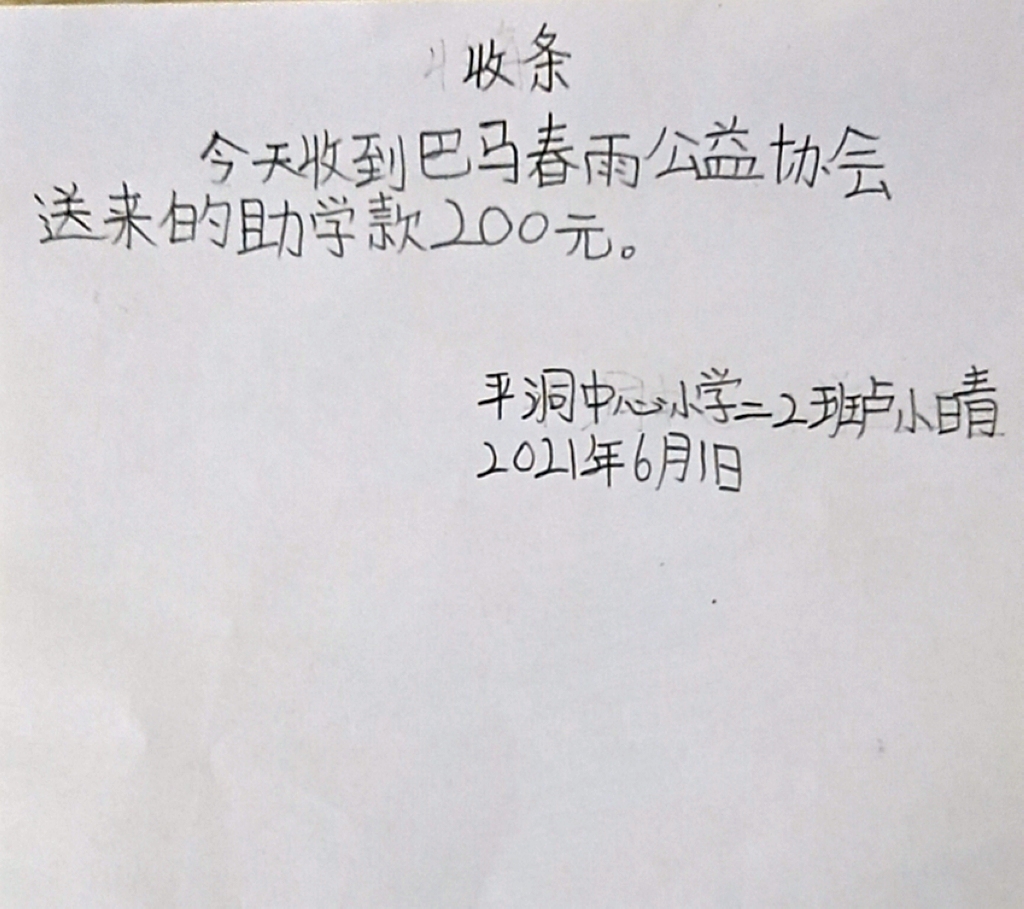 收条
今天收到巴马春雨公益协会
送来的助学款200元。
平洞中心小学二2班卢小晴
2021年6月1日